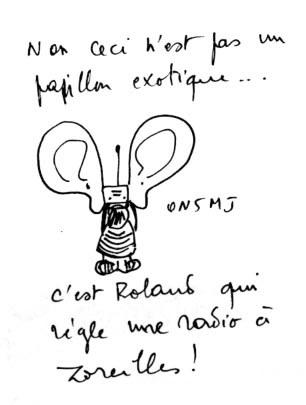 Non ceci n'est pas un
papillon exotique...
ON5MJ
c'est Roland qui
règle une radio à
zoreilles!